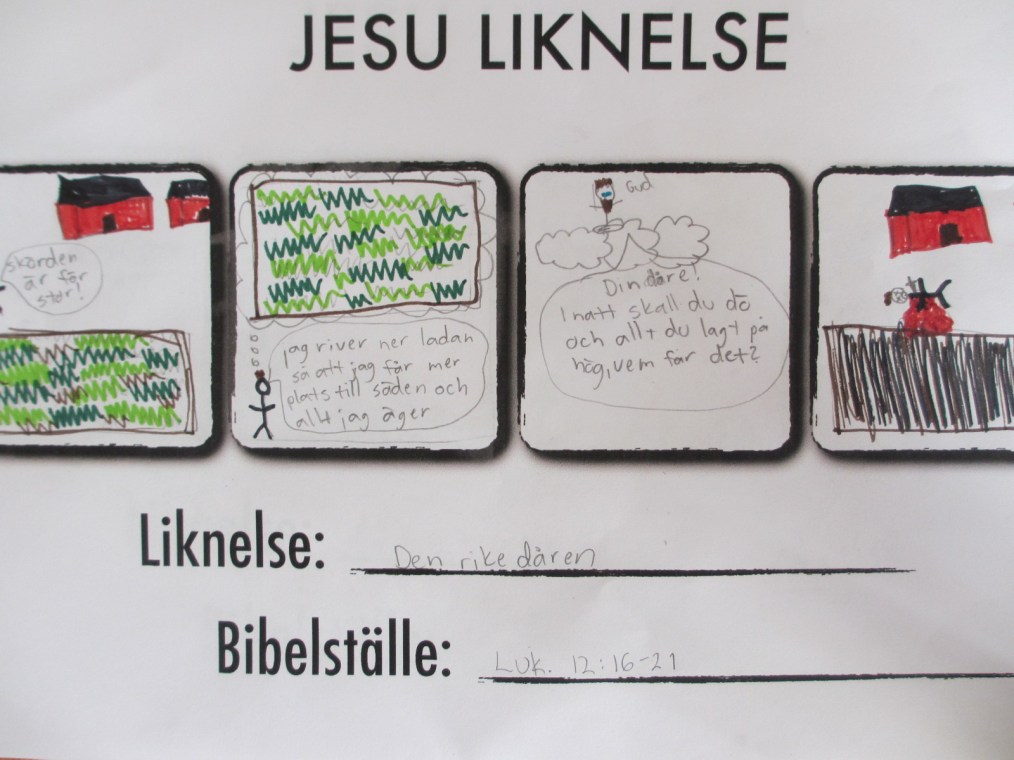 JESU LIKNELSE
skörden
är för
stor!
jag river ner ladan
så att jag får mer
plats till säden och
allt jag äger
Gud
Din dåre!
I natt skall du dö
och allt du lagt på
hög, vem får det?
Liknelse: Den rike dåren
Bibelställe: Luk. 12:16-21